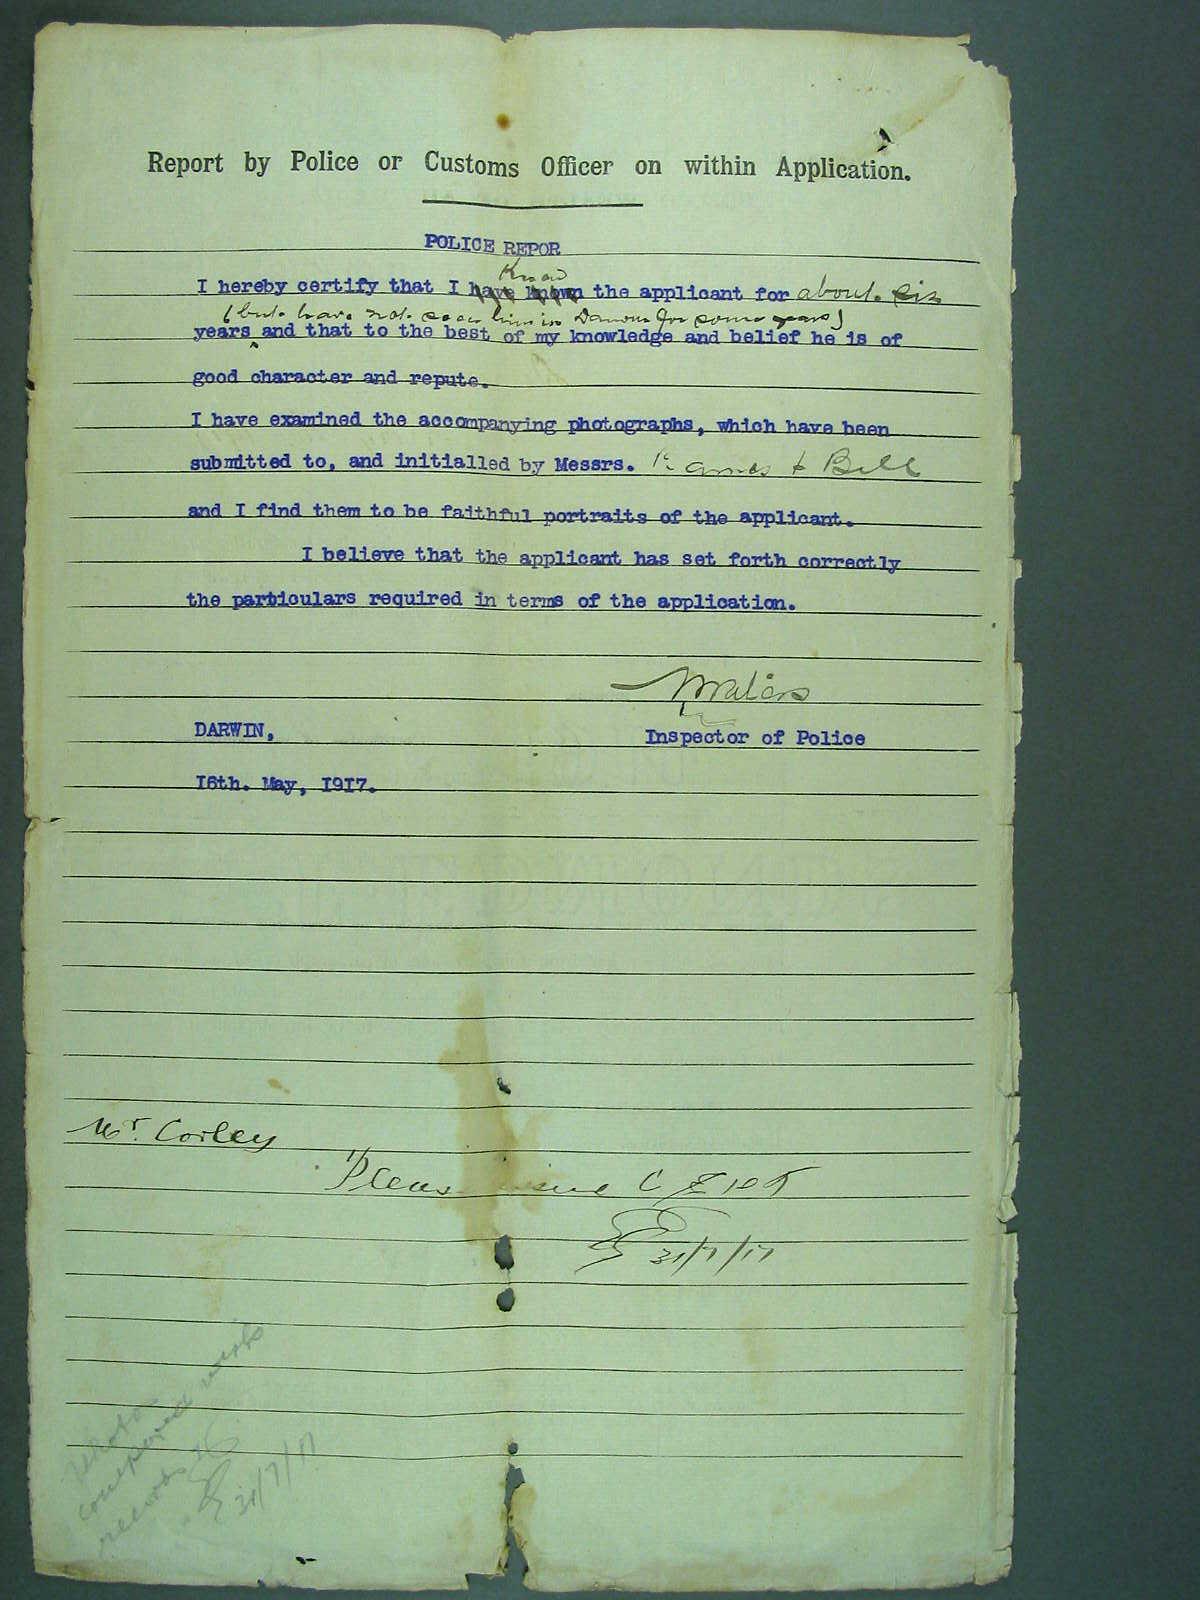 Report by Police or Customs Officer on within Application.
POLICE REPOR
Know
I hereby certify that I have known the applicant for about six
(but have not seen him in Darwin for some years)
years and that to the best of my knowledge and belief he is of
good character and repute.
I have examined the accompanying photographs, which have been
submitted to, and initialled by Messrs. & Bell
and I find them to be faithful portraits of the applicant.
I believe that the applicant has set forth correctly
the particulars required in terms of the application.
Waters
DARWIN,
Inspector of Police
16th. May, 1917.
Mr. Corley
Please issue C E D T
31/7/17
Photo
compared with
records
31/7/17